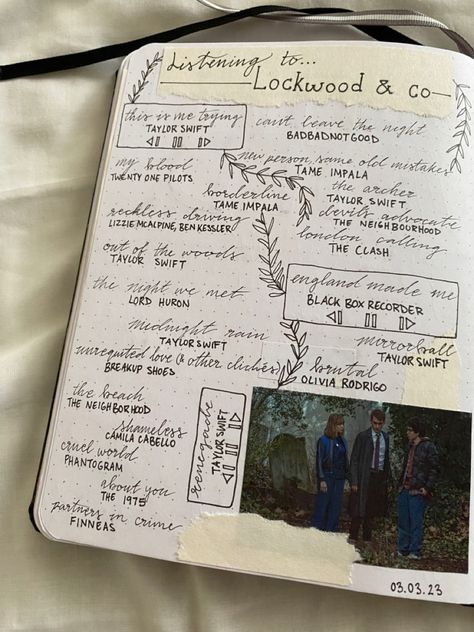 Listening to...
Lockwood & co
this is me trying
TAYLOR SWIFT
can't leave the night
BADBADNOTGOOD
my blood
TWENTY ONE PILOTS
new person, same old mistakes
TAME IMPALA
borderline
TAME IMPALA
the archer
TAYLOR SWIFT
reckless driving
LIZZIE MCALPINE, BEN KESSLER
devils advocate
THE NEIGHBOURHOOD
london calling
THE CLASH
out of the woods
TAYLOR SWIFT
the night we met
LORD HURON
england made me
BLACK BOX RECORDER
midnight rain
TAYLOR SWIFT
mirrorball
TAYLOR SWIFT
unrequited love (& other clichés)
BREAKUP SHOES
brutal
OLIVIA RODRIGO
the beach
THE NEIGHBORHOOD
shameless
CAMILA CABELLO
renegade
TAYLOR SWIFT
cruel world
PHANTOGRAM
about you
THE 1975
partners in crime
FINNEAS
03.03.23